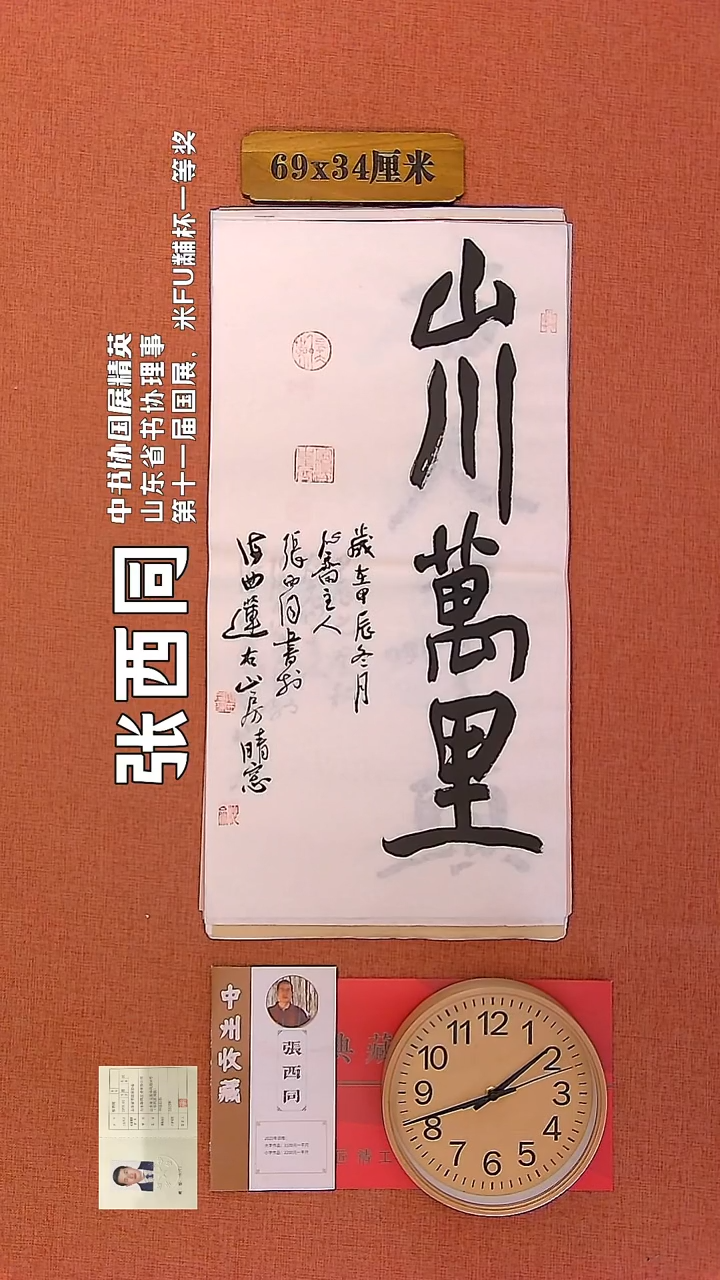 69x34厘米
山川萬里
歲在甲辰冬月
心齋主人
張西同書於
海西蓮右山房晴窗
张西同
中书协国展精英
山东省书协理事
第十一届国展，米FU黼杯一等奖
中
張西同
典藏
12
1
2
3
4
5
6
7
8
9
10
11